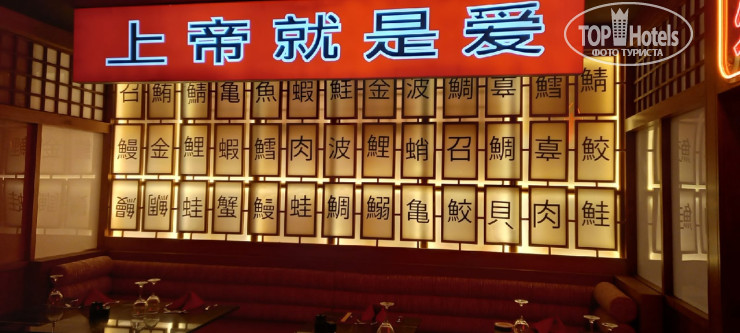 上帝就是爱
TOPHotels
ФОТО ТУРИСТА
召鮪鯖亀魚蝦鮭金波鯛享鱈鯖
鰻金鯉蝦鱈肉波鯉蛸召鯛享鮫
鰻鯛蛙蟹鰻蛙鯛鰯亀鮫貝肉鮭